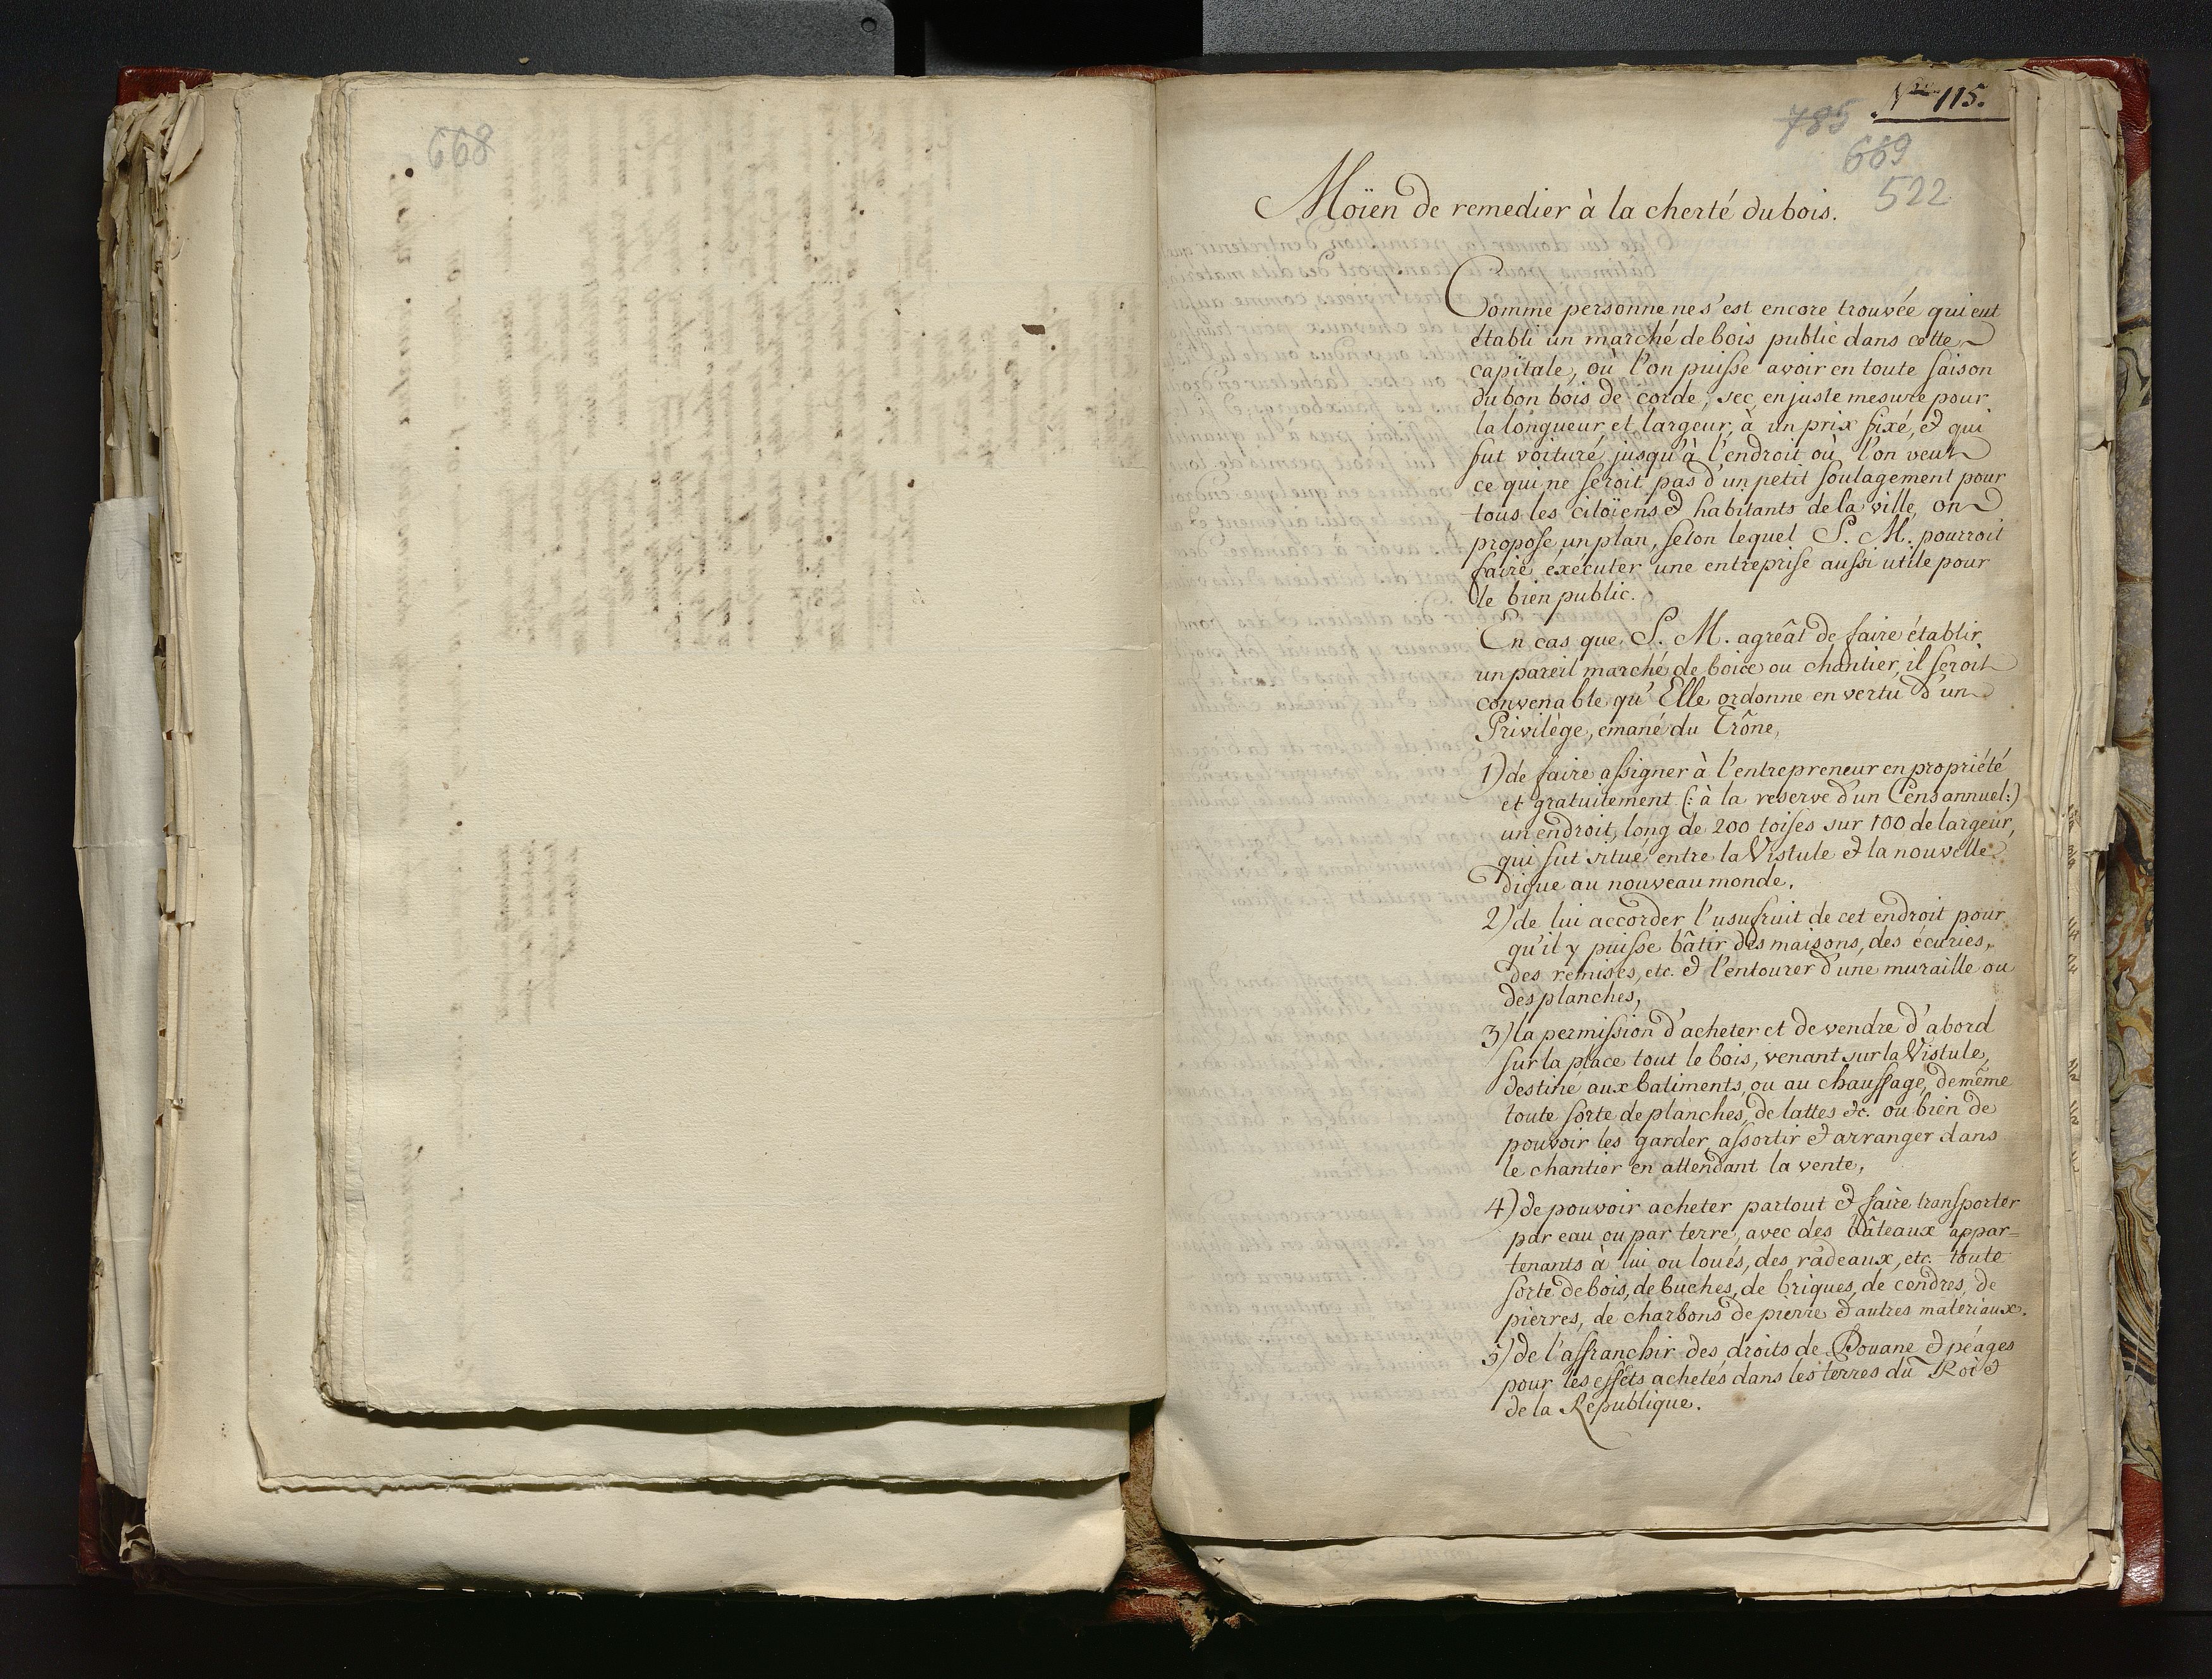 668
Nro 115.
785
669
522
Moïen de remedier à la cherté du bois.
Comme personne ne s'est encore trouvée qui eut
établi un marché de bois public dans cette
capitale, où l'on puisse avoir en toute saison
du bon bois de corde, sec, en juste mesure pour
la longueur et largeur, à un prix fixé, et qui
fut voituré jusqu'à l'endroit où l'on veut
ce qui ne seroit pas d'un petit soulagement pour
tous les citoïens et habitants de la ville, on
propose un plan, selon lequel S. M. pourroit
faire exécuter une entreprise aussi utile pour
le bien public.
En cas que S. M. agreât de faire établir
un pareil marché de boice ou chantier, il seroit
convenable qu'Elle ordonne en vertu d'un
Privilège, emané du Trône,
1) de faire assigner à l'entrepreneur en propriété
et gratuitement (: à la reserve d'un Cens annuel :)
un endroit, long de 200 toises sur 100 de largeur,
qui fut situé entre la Vistule et la nouvelle
digue au nouveau monde.
2) de lui accorder l'usufruit de cet endroit pour
qu'il y puisse bâtir des maisons, des écuries,
des remises, etc. et l'entourer d'une muraille ou
des planches,
3) la permission d'acheter et de vendre d'abord
sur la place tout le bois, venant sur la Vistule,
destiné aux batiments, ou au chauffage, de même
toute sorte de planches, de lattes etc. ou bien de
pouvoir les garder, assortir et arranger dans
le chantier en attendant la vente,
4) de pouvoir acheter partout et faire transporter
par eau ou par terre, avec des bâteaux appar=
tenants à lui ou loués, des radeaux, etc. toute
sorte de bois, de buches, de briques, de cendres, de
pierres, de charbons de pierre et autres materiaux.
5) de l'affranchir des droits de Douane et péages
pour les effets achetés dans les terres du Roi et
de la Republique.